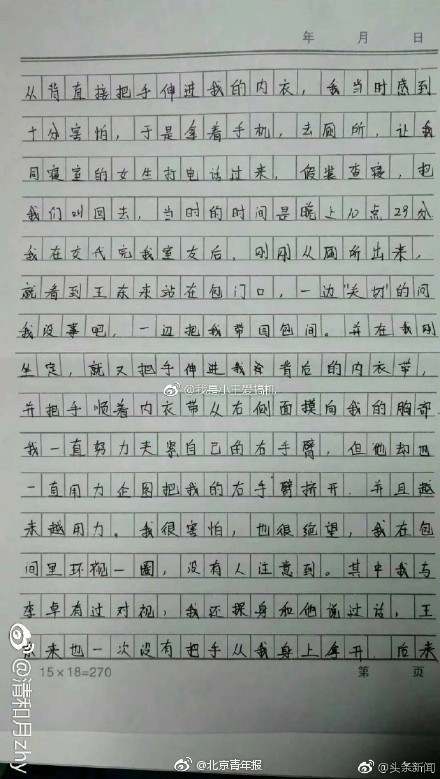 年 月 日
从背直接把手伸进我的内衣，我当时感到
十分害怕，于是拿着手机，去厕所，让我
同寝室的女生打电话过来，假装查寝，把
我们叫回去，当时的时间是晚上10点29分
我在交代完我室友后，刚刚从厕所出来，
就看到王东来站在包门口，一边“关切”的问
我没事吧，一边把我带回包间。并在我刚
坐定，就又把手伸进我背后的内衣带，
@我是小王爱搞机
并把手顺着内衣带从右侧面摸向我的胸部
我一直努力夹紧自己的右手臂，但他却也
一直用力企图把我的右手臂掰开，并且越
来越用力。我很害怕，也很绝望，我在包
间里环视一圈，没有人注意到。其中我与
李卓有过对视，我还探身和他说过话，王
来也一次没有把手从我身上拿开，后来
15×18=270 第 页
@清和月zhy
@北京青年报
@头条新闻